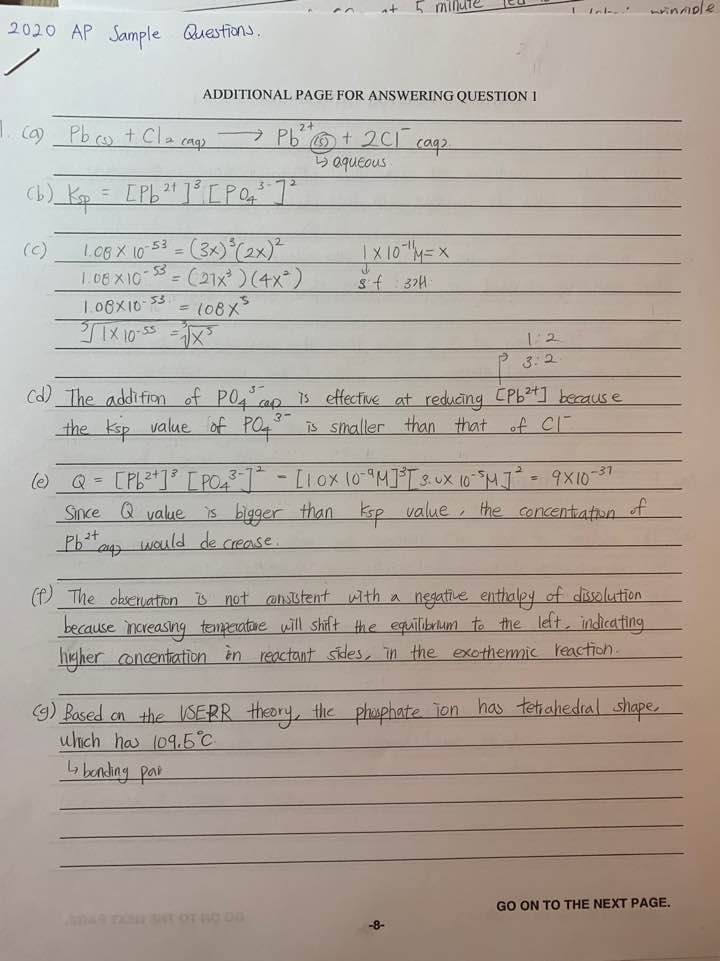 at 5 minute
2020 AP Sample Questions.
ADDITIONAL PAGE FOR ANSWERING QUESTION 1
1. (a) Pb(s) + Cl2 (aq) → Pb2+(s) + 2Cl- (aq).
↳ aqueous
(b) Ksp = [Pb2+]3 [PO43-]2
(c) 1.08 × 10-53 = (3x)3(2x)2 1 × 10-11M = x
1.08 × 10-53 = (27x3)(4x2) ↓ s.f :
1.08×10-53 = 108x5
5√1×10-55 = 5√x5
1:2
3:2
(d) The addition of PO43-(aq) is effective at reducing [Pb2+] because
the Ksp value of PO43- is smaller than that of Cl-
(e) Q = [Pb2+]3 [PO43-]2 = [1.0 × 10-9M]3[3.0× 10-5M]2 = 9×10-37
Since Q value is bigger than Ksp value, the concentration of
Pb2+(aq) would decrease.
(f) The observation is not consistent with a negative enthalpy of dissolution
because increasing temperature will shift the equilibrium to the left, indicating
higher concentration in reactant sides, in the exothermic reaction.
(g) Based on the VSEPR theory, the phosphate ion has tetrahedral shape,
which has 109.5°C.
↳ bonding pair
GO ON TO THE NEXT PAGE.
-8-